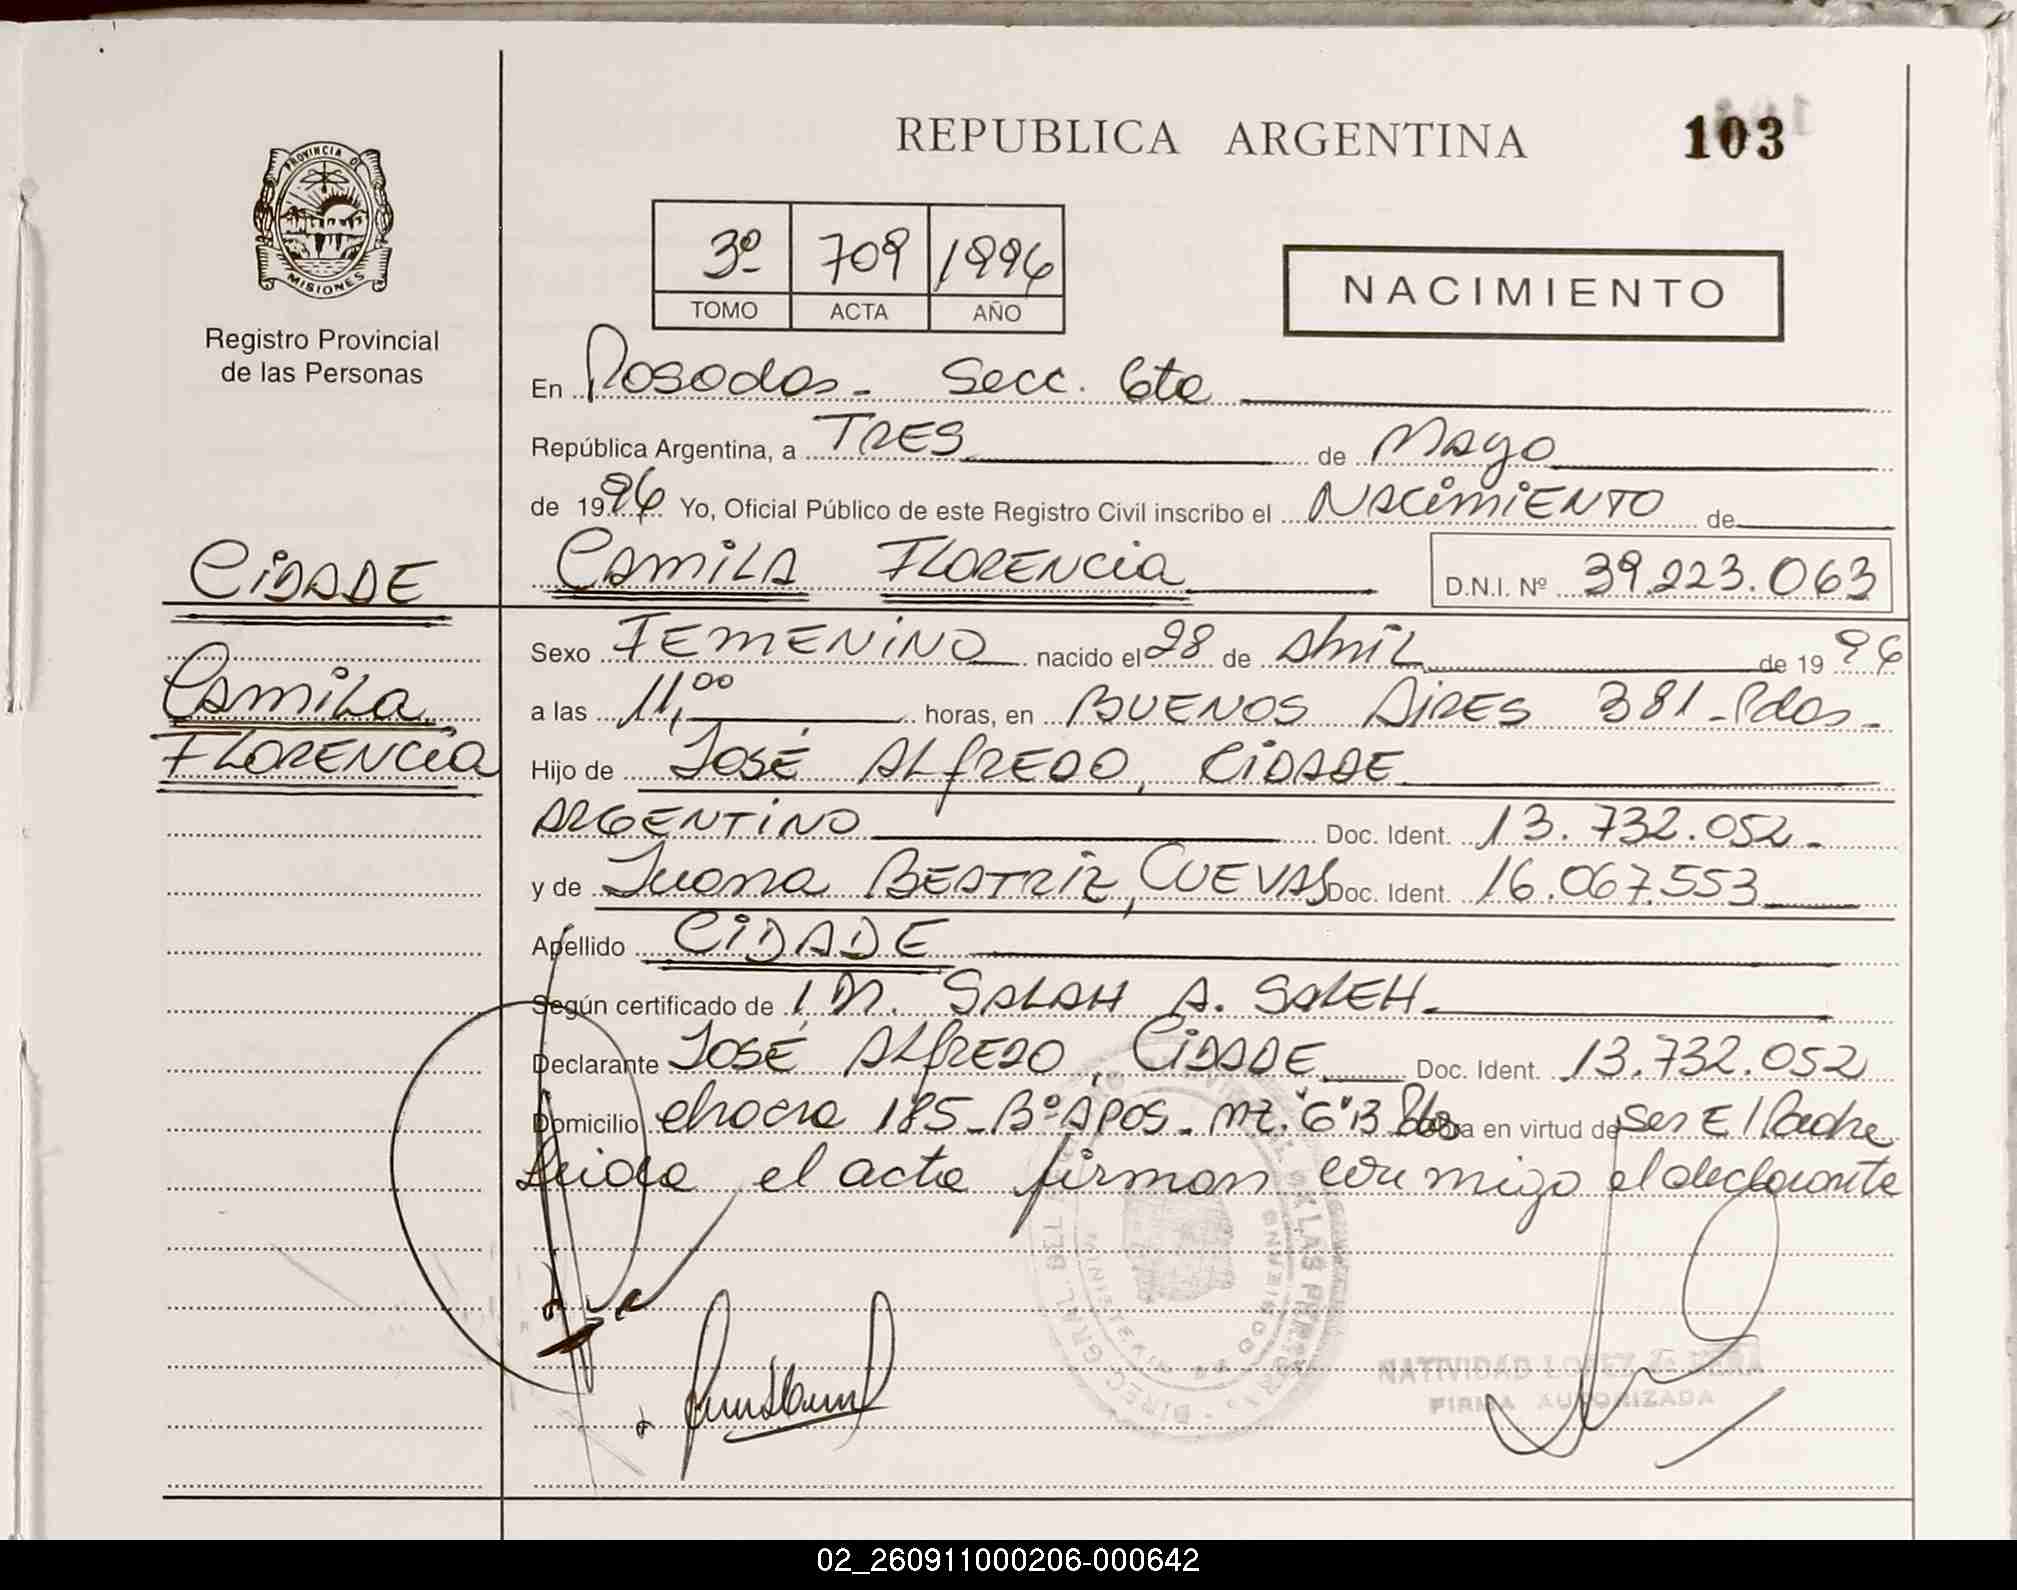 REPUBLICA ARGENTINA
103
PROVINCIA DE
MISIONES
Registro Provincial
de las Personas
3º 709 1996
TOMO ACTA AÑO
NACIMIENTO
En Posadas - Secc. 6ta
República Argentina, a TRES de Mayo
de 1996 Yo, Oficial Público de este Registro Civil inscribo el NACIMIENTO de
CIDADE
CAMILA FLORENCIA
D.N.I. Nº 39.223.063
CAMILA
FLORENCIA
Sexo FEMENINO nacido el 28 de Abril de 1996
a las 11,00 horas, en BUENOS AIRES 381 - Pdas -
Hijo de JOSÉ ALFREDO, CIDADE
ARGENTINO Doc. Ident. 13.732.052 -
y de Juana BEATRIZ, CUEVAS Doc. Ident. 16.067.553
Apellido CIDADE
Según certificado de SALAH A. SALEH -
Declarante JOSÉ ALFREDO, CIDADE Doc. Ident. 13.732.052
Domicilio chacra 185 - Bº APOS - MZ. "G" B en virtud de Ser El Padre
Leida el acta firman con migo el declarante
FIRMA AUTORIZADA
02_260911000206-000642